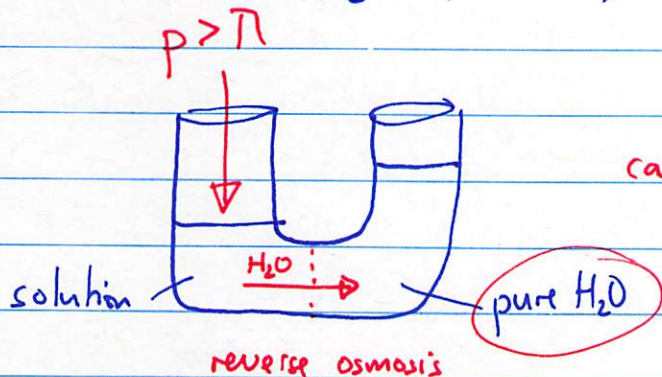 p > π
ca
H₂O
solution
pure H₂O
reverse osmosis